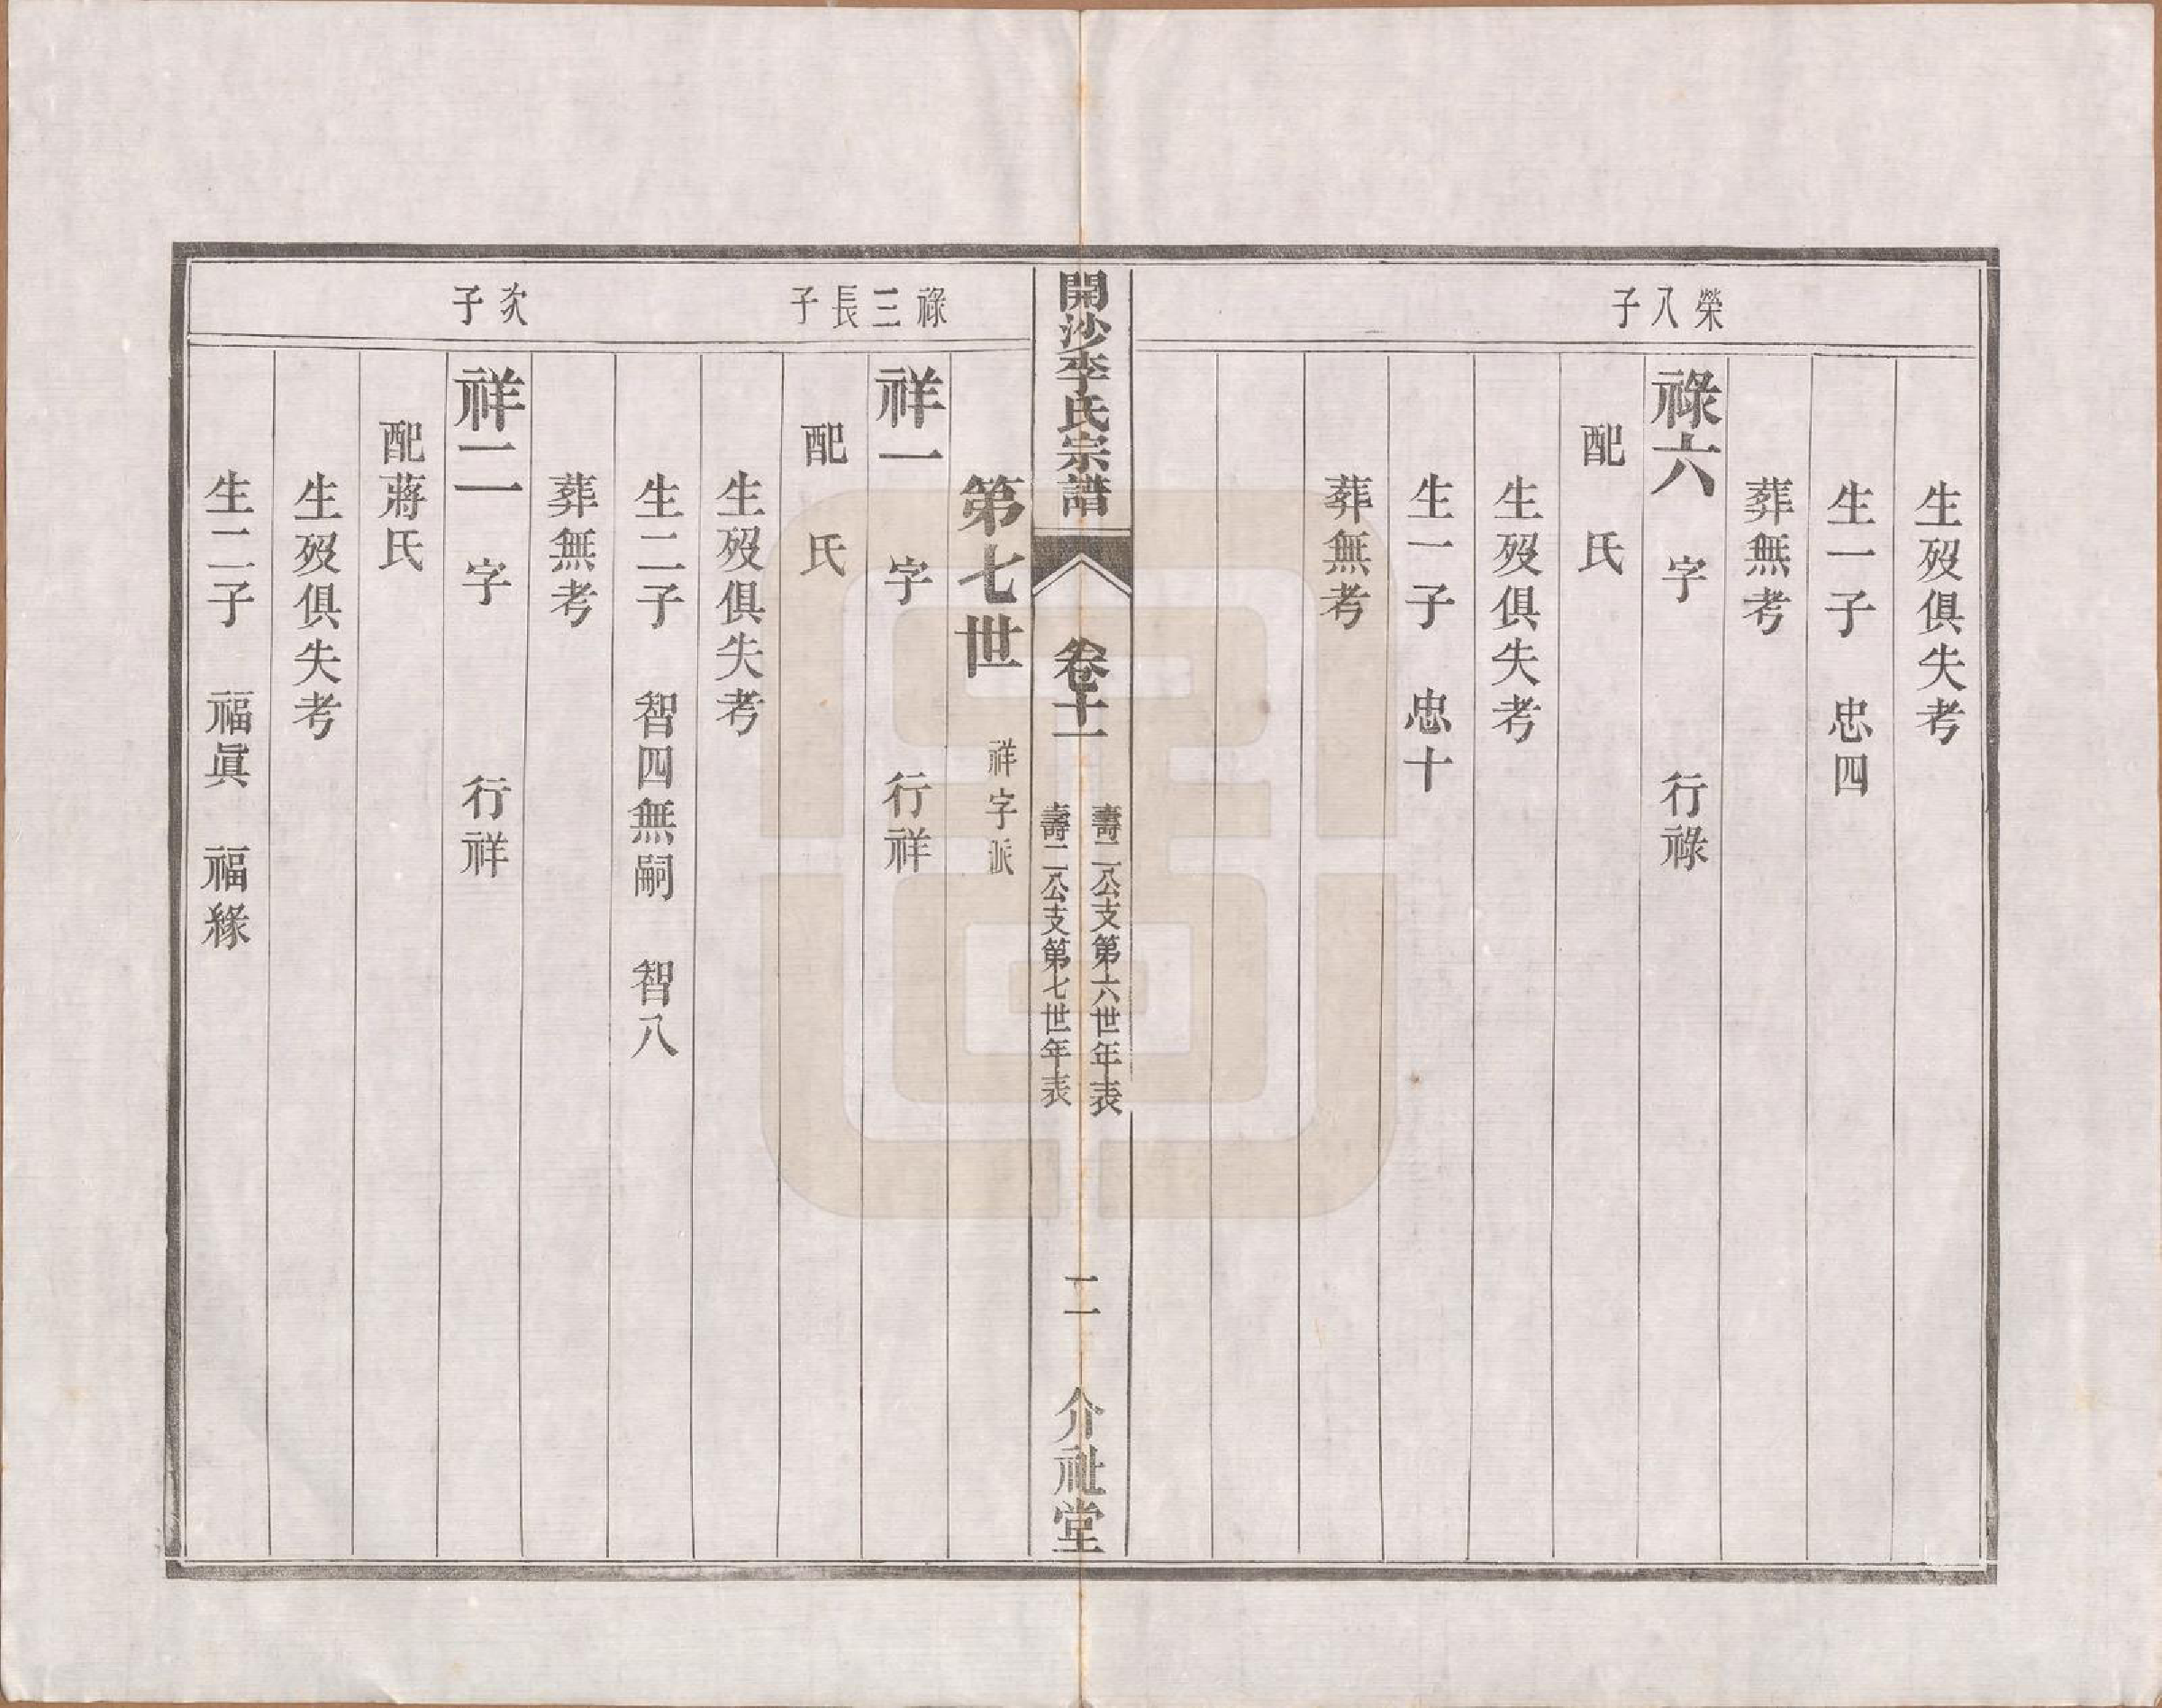 榮八子
生歿俱失考
生一子　忠四
葬無考
祿六　字　行祿
配　氏
生歿俱失考
生一子　忠十
葬無考
開沙李氏宗譜
卷十一
壽二公支第六世年表
壽二公支第七世年表
二
介祉堂
祿三長子
次子
第七世　祥字派
祥一　字　行祥
配　氏
生歿俱失考
生二子　智四無嗣　智八
葬無考
祥二　字　行祥
配蔣氏
生歿俱失考
生二子　福眞　福緣